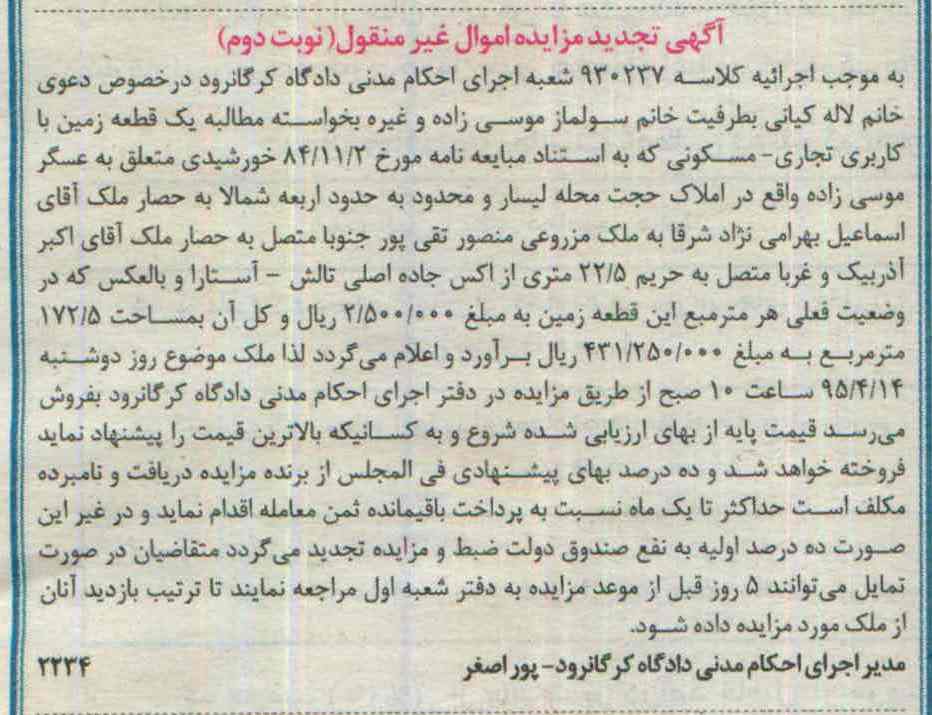 آگهی تجدید مزایده اموال غیر منقول( نوبت دوم)
به موجب اجرائیه کلاسه ۹۳۰۲۳۷ شعبه اجرای احکام مدنی دادگاه کرگانرود درخصوص دعوی
خانم لاله کیانی بطرفیت خانم سولماز موسی زاده و غیره بخواسته مطالبه یک قطعه زمین با
کاربری تجاری- مسکونی که به استناد مبایعه نامه مورخ ۸۴/۱۱/۲ خورشیدی متعلق به عسگر
موسی زاده واقع در املاک حجت محله لیسار و محدود به حدود اربعه شمالا به حصار ملک آقای
اسماعیل بهرامی نژاد شرقا به ملک مزروعی منصور تقی پور جنوبا متصل به حصار ملک آقای اکبر
آذربیک و غربا متصل به حریم ۲۲/۵ متری از اکس جاده اصلی تالش - آستارا و بالعکس که در
وضعیت فعلی هر مترمبع این قطعه زمین به مبلغ ۲/۵۰۰/۰۰۰ ریال و کل آن بمساحت ۱۷۲/۵
مترمربع به مبلغ ۴۳۱/۲۵۰/۰۰۰ ریال برآورد و اعلام می‌گردد لذا ملک موضوع روز دوشنبه
۹۵/۴/۱۴ ساعت ۱۰ صبح از طریق مزایده در دفتر اجرای احکام مدنی دادگاه کرگانرود بفروش
می‌رسد قیمت پایه از بهای ارزیابی شده شروع و به کسانیکه بالاترین قیمت را پیشنهاد نماید
فروخته خواهد شد و ده درصد بهای پیشنهادی فی المجلس از برنده مزایده دریافت و نامبرده
مکلف است حداکثر تا یک ماه نسبت به پرداخت باقیمانده ثمن معامله اقدام نماید و در غیر این
صورت ده درصد اولیه به نفع صندوق دولت ضبط و مزایده تجدید می‌گردد متقاضیان در صورت
تمایل می‌توانند ۵ روز قبل از موعد مزایده به دفتر شعبه اول مراجعه نمایند تا ترتیب بازدید آنان
از ملک مورد مزایده داده شود.
مدیر اجرای احکام مدنی دادگاه کرگانرود- پور اصغر ۲۲۳۴